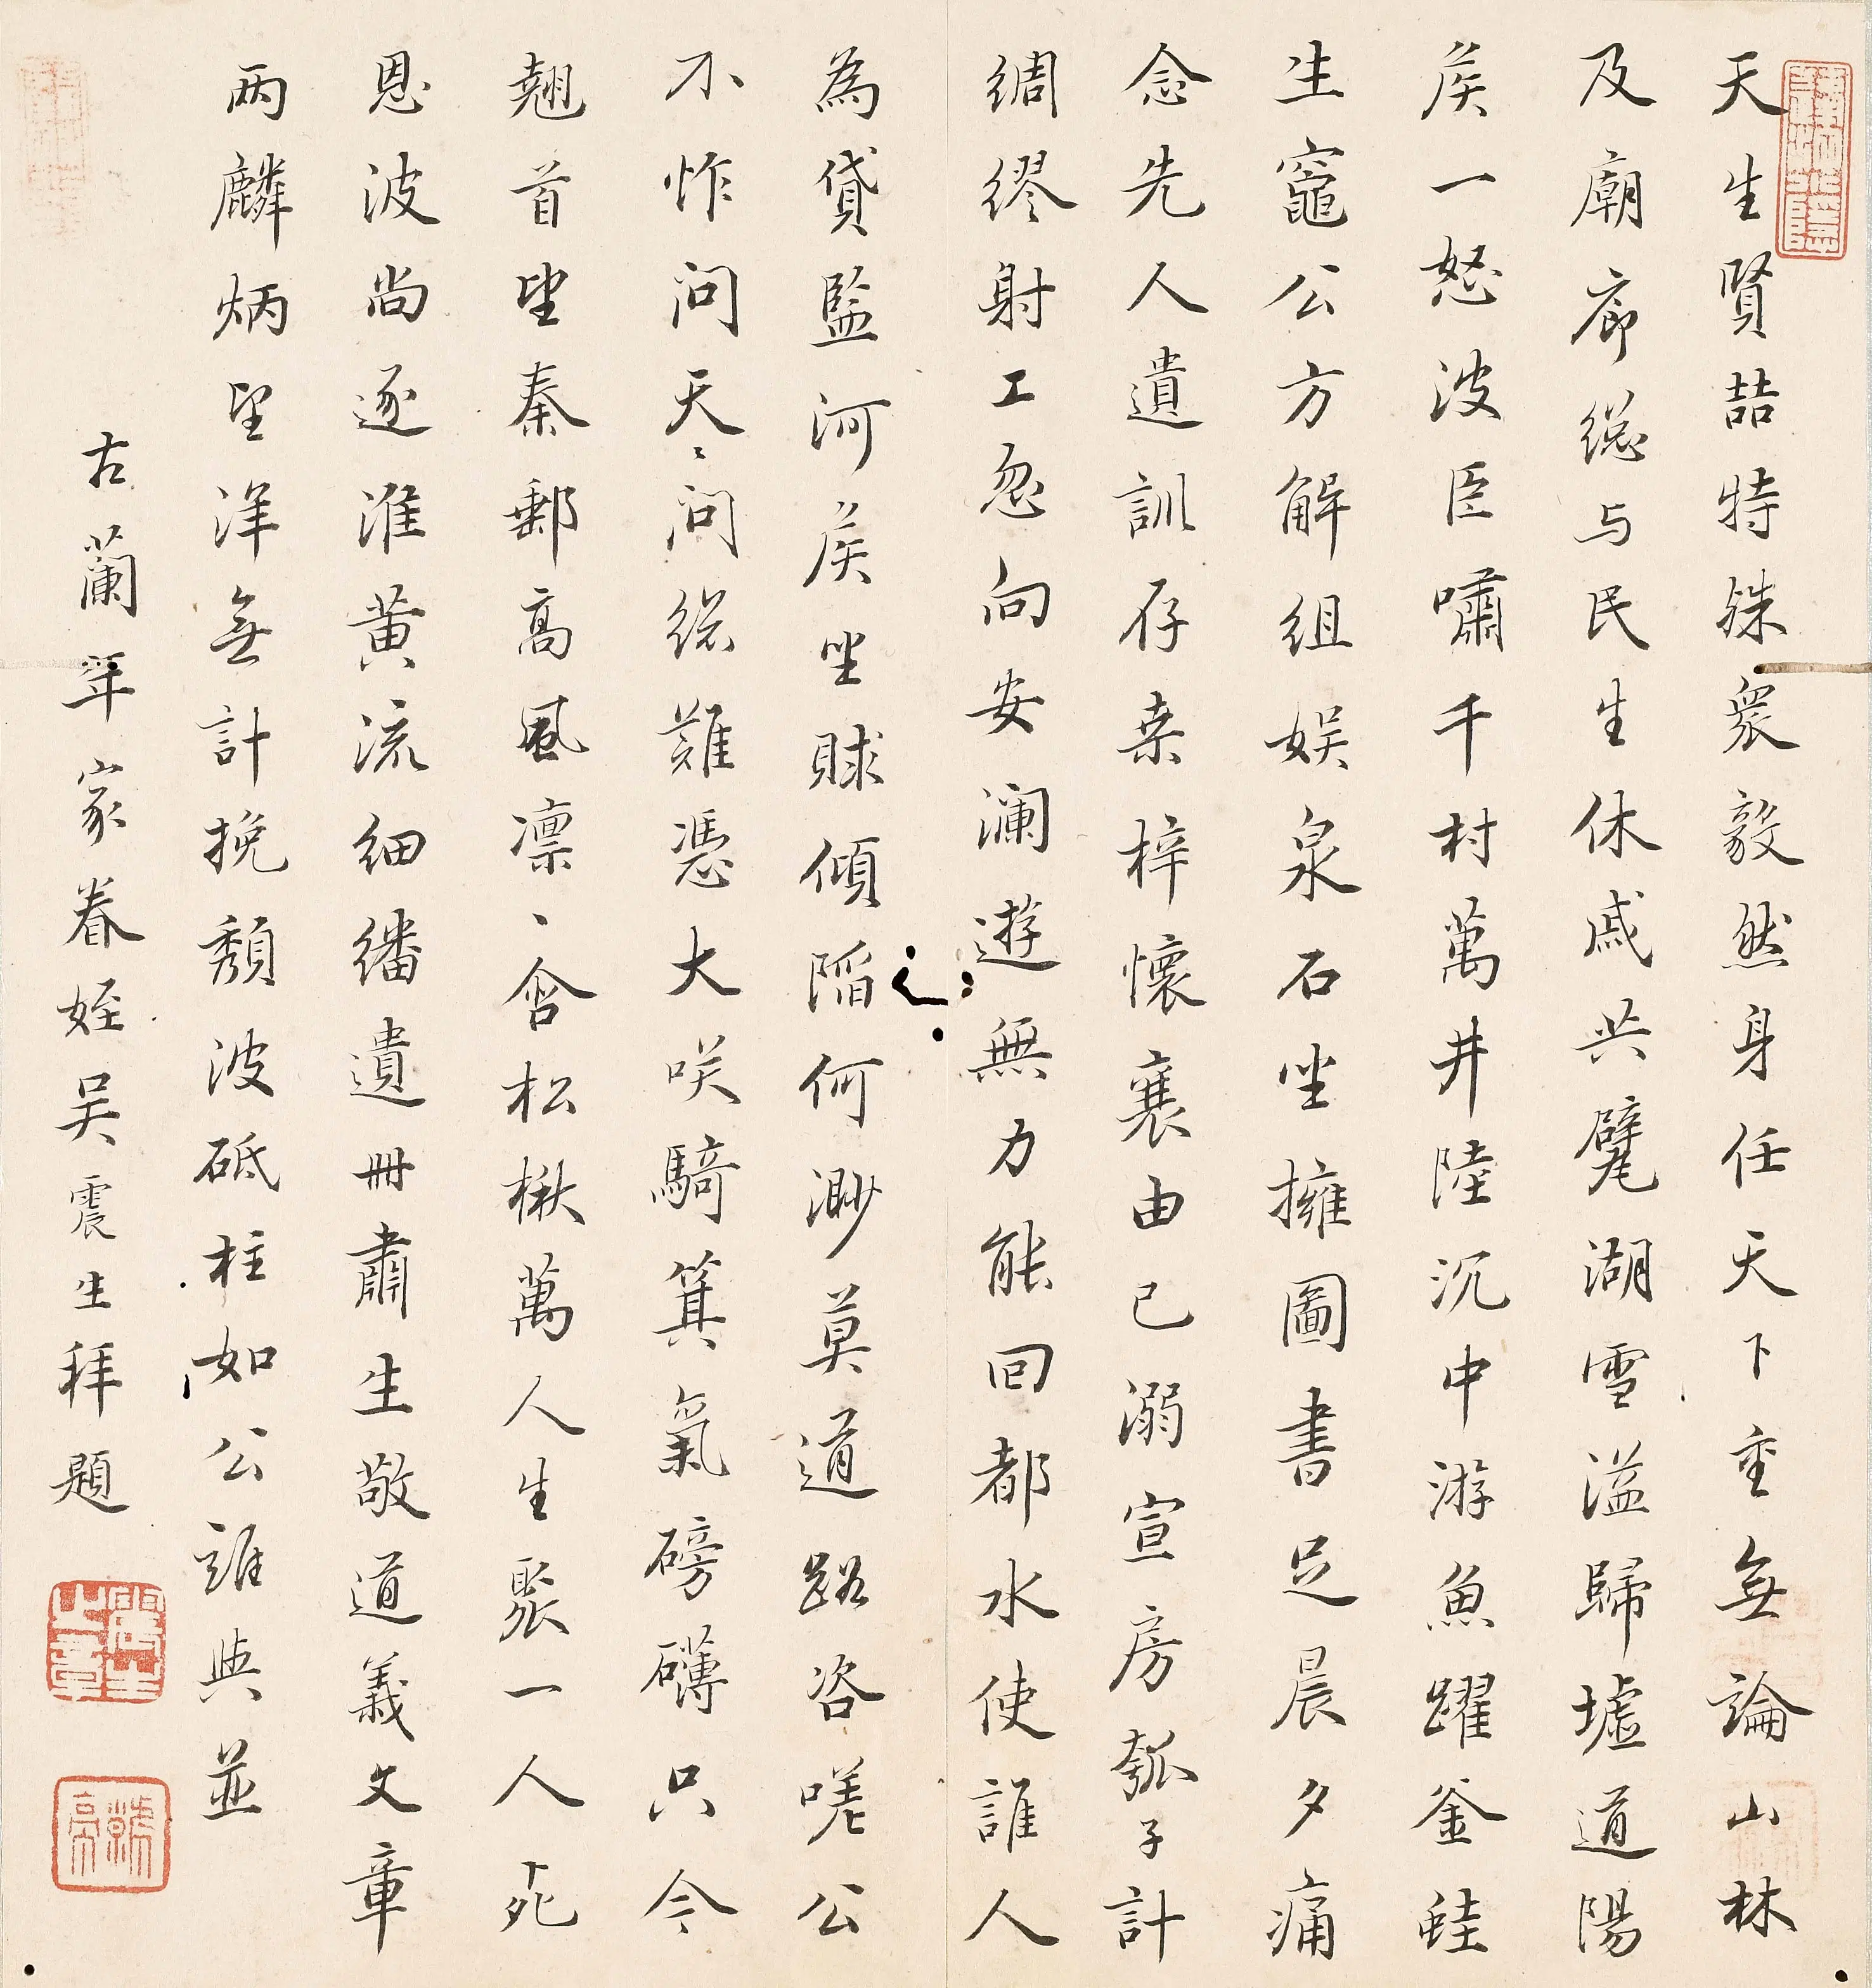 天生賢喆特殊衆毅然身任天下重無論山林
及廟廊總与民生休戚共甓湖雪溢歸墟道陽
矦一怒波臣嘯千村萬井陸沉中游魚躍釜鼃
生竈公方解組娱泉石坐擁圖書足晨夕痛
念先人遺訓存桒梓懷襄由己溺宣房瓠子計
綢繆射工忽向安瀾遊無力能回都水使誰人
為貸監河矦坐賕傾陷何渺莫道路咨嗟公
不怍問天天問總難憑大咲騎箕氣磅礴只今
翹首望秦郵高風凛凛含松楸萬人生聚一人死
恩波尚逐淮黄流細繙遺冊肅生敬道義文章
兩麟炳望洋無計挽頹波砥柱如公誰與並
古蘭年家眷姪吴震生拜題
震生之章